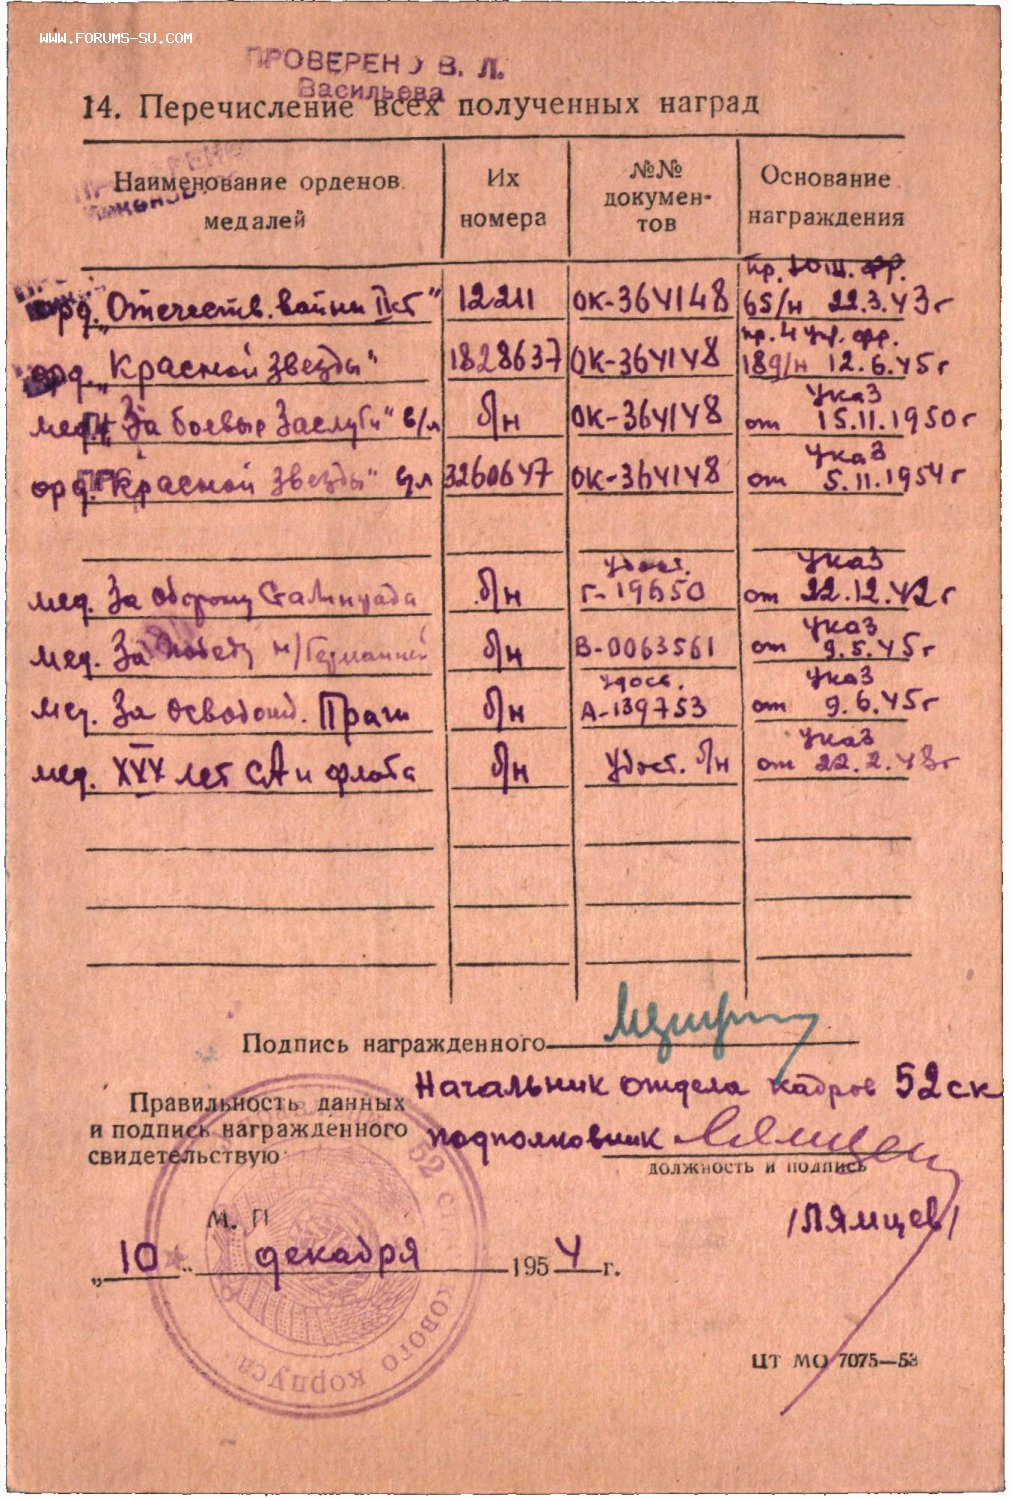 WWW.FORUMS-SU.COM
ПРОВЕРЕНО В. Л.
Васильева
14. Перечисление всех полученных наград
Наименование орденов медалей | Их номера | №№ документов | Основание награждения
пр. Юж. фр.
орд. „Отечеств. войны II ст" 12211 ОК-364148 65/н 22.3.43г
пр. 4 Ук. фр.
орд. „Красной Звезды" 1828637 ОК-364148 189/н 12.6.45г
Указ
мед. „За боевые Заслуги" в/л б/н ОК-364148 от 15.11.1950г
Указ
орд. „Красной Звезды" в/л 3260647 ОК-364148 от 5.11.1954г
Удост. Указ
мед. За оборону Сталинграда б/н Г-19650 от 22.12.42г
Указ
мед. За победу н/Германией б/н В-0063561 от 9.5.45г
Удост. Указ
мед. За Освобожд. Праги б/н А-139753 от 9.6.45г
Указ
мед. XXX лет СА и флота б/н Удост. б/н от 22.2.48г
Подпись награжденного
Начальник отдела кадров 52 ск
Правильность данных
и подпись награжденного
свидетельствую
подполковник
должность и подпись
/ЛЯМЦЕВ/
М. П
„10" декабря 1954 г.
52 стрелкового корпуса
ЦТ МО 7075—53